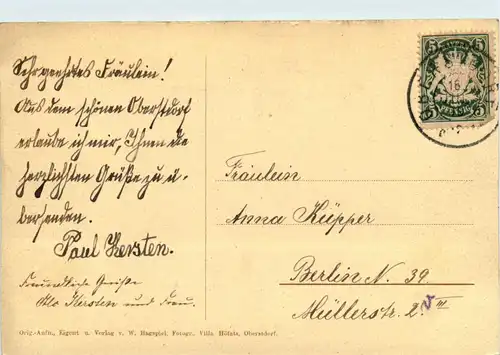 Sehrgeehrtes Fräulein!
Aus dem schönen Oberstdorf
erlaube ich mir, Ihnen die
herzlichsten Grüße zu ü-
bersenden.
Paul Kersten.
Freundliche Grüße
Otto Kersten und Frau.
Orig.-Aufn., Eigent u. Verlag v. W. Hagspiel, Fotogr., Villa Hölatz, Oberstdorf.
5 5
18
5 PFENNIG 5
Fräulein
Anna Küpper
Berlin N. 39
Müllerstr. 2. III